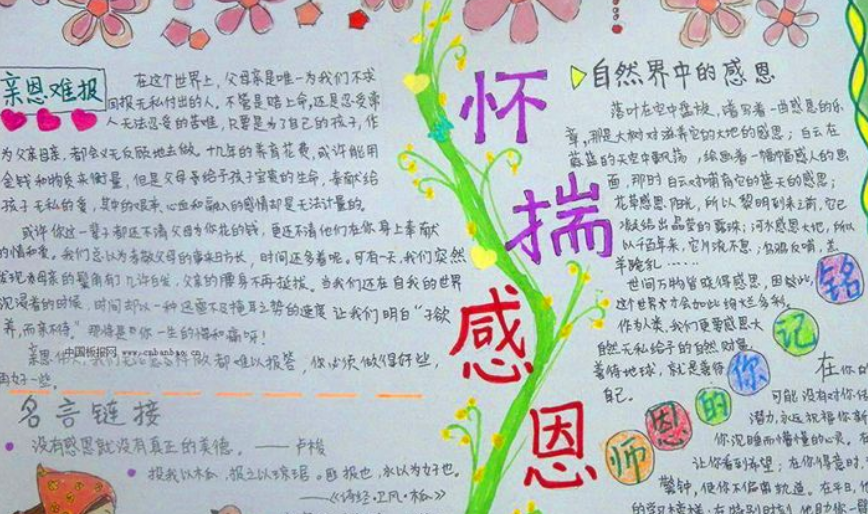 亲恩难报
在这个世界上,父母亲是唯一为我们不求
回报无私付出的人。不管是赔上命,还是忍受常
人无法忍受的苦难,只要是为了自己的孩子,作
为父亲母亲,都会义无反顾地去做。十几年的养育花费,或许能用
金钱和物质来衡量,但是父母给予孩子宝贵的生命,奉献给
孩子无私的爱,其中的艰辛、心血和融入的感情却是无法计量的。
或许你这一辈子都还不清父母为你花的钱,更还不清他们在你身上奉献
的情和爱。我们总以为孝敬父母的事来日方长,时间还多着呢。可有一天,我们突然
发现为母亲的鬓角有了几许白丝,父亲的腰身不再挺拔。当我们还在自我的世界
沉浸着的时候,时间却以一种迅雷不及掩耳之势的速度让我们明白“子欲
养,而亲不待。”那将是你一生的悔和痛呀!
亲恩 都难以报答,你必须做得好些,
再好一些。
中国板报网 www.cnbanbao.cn
名言链接
没有感恩就没有真正的美德。——卢梭
投我以木瓜,报之以琼琚。匪报也,永以为好也。
——《诗经·卫风·木瓜》
怀揣感恩
自然界中的感恩
落叶在空中盘旋,谱写着一曲感恩的乐
章,那是大树对滋养它的大地的感恩;白云在
蔚蓝的天空中飘荡,绘画着一幅幅感人的画
面,那时白云对哺育它的蓝天的感恩;
花草感恩阳光,所以黎明到来前,它已
凝结出晶莹的露珠;河水感恩大地,所以
以千百年来,它川流不息;乌鸦反哺,羔
羊跪乳……
世间万物皆晓得感恩,因然此,
这个世界才会如此绚烂多彩。
作为人类,我们更要感恩大
自然无私给予的自然对象。
善待地球,就是善待
自己。
铭记你的恩师
在你的
可能没有对你
潜力,永远祝福你
你沉睡而懵懂的心灵,在
让你看到希望;在你得意时,
警钟,使你不偏离轨道。在平日,他
的学习榜样;在特别时刻,他助你一臂